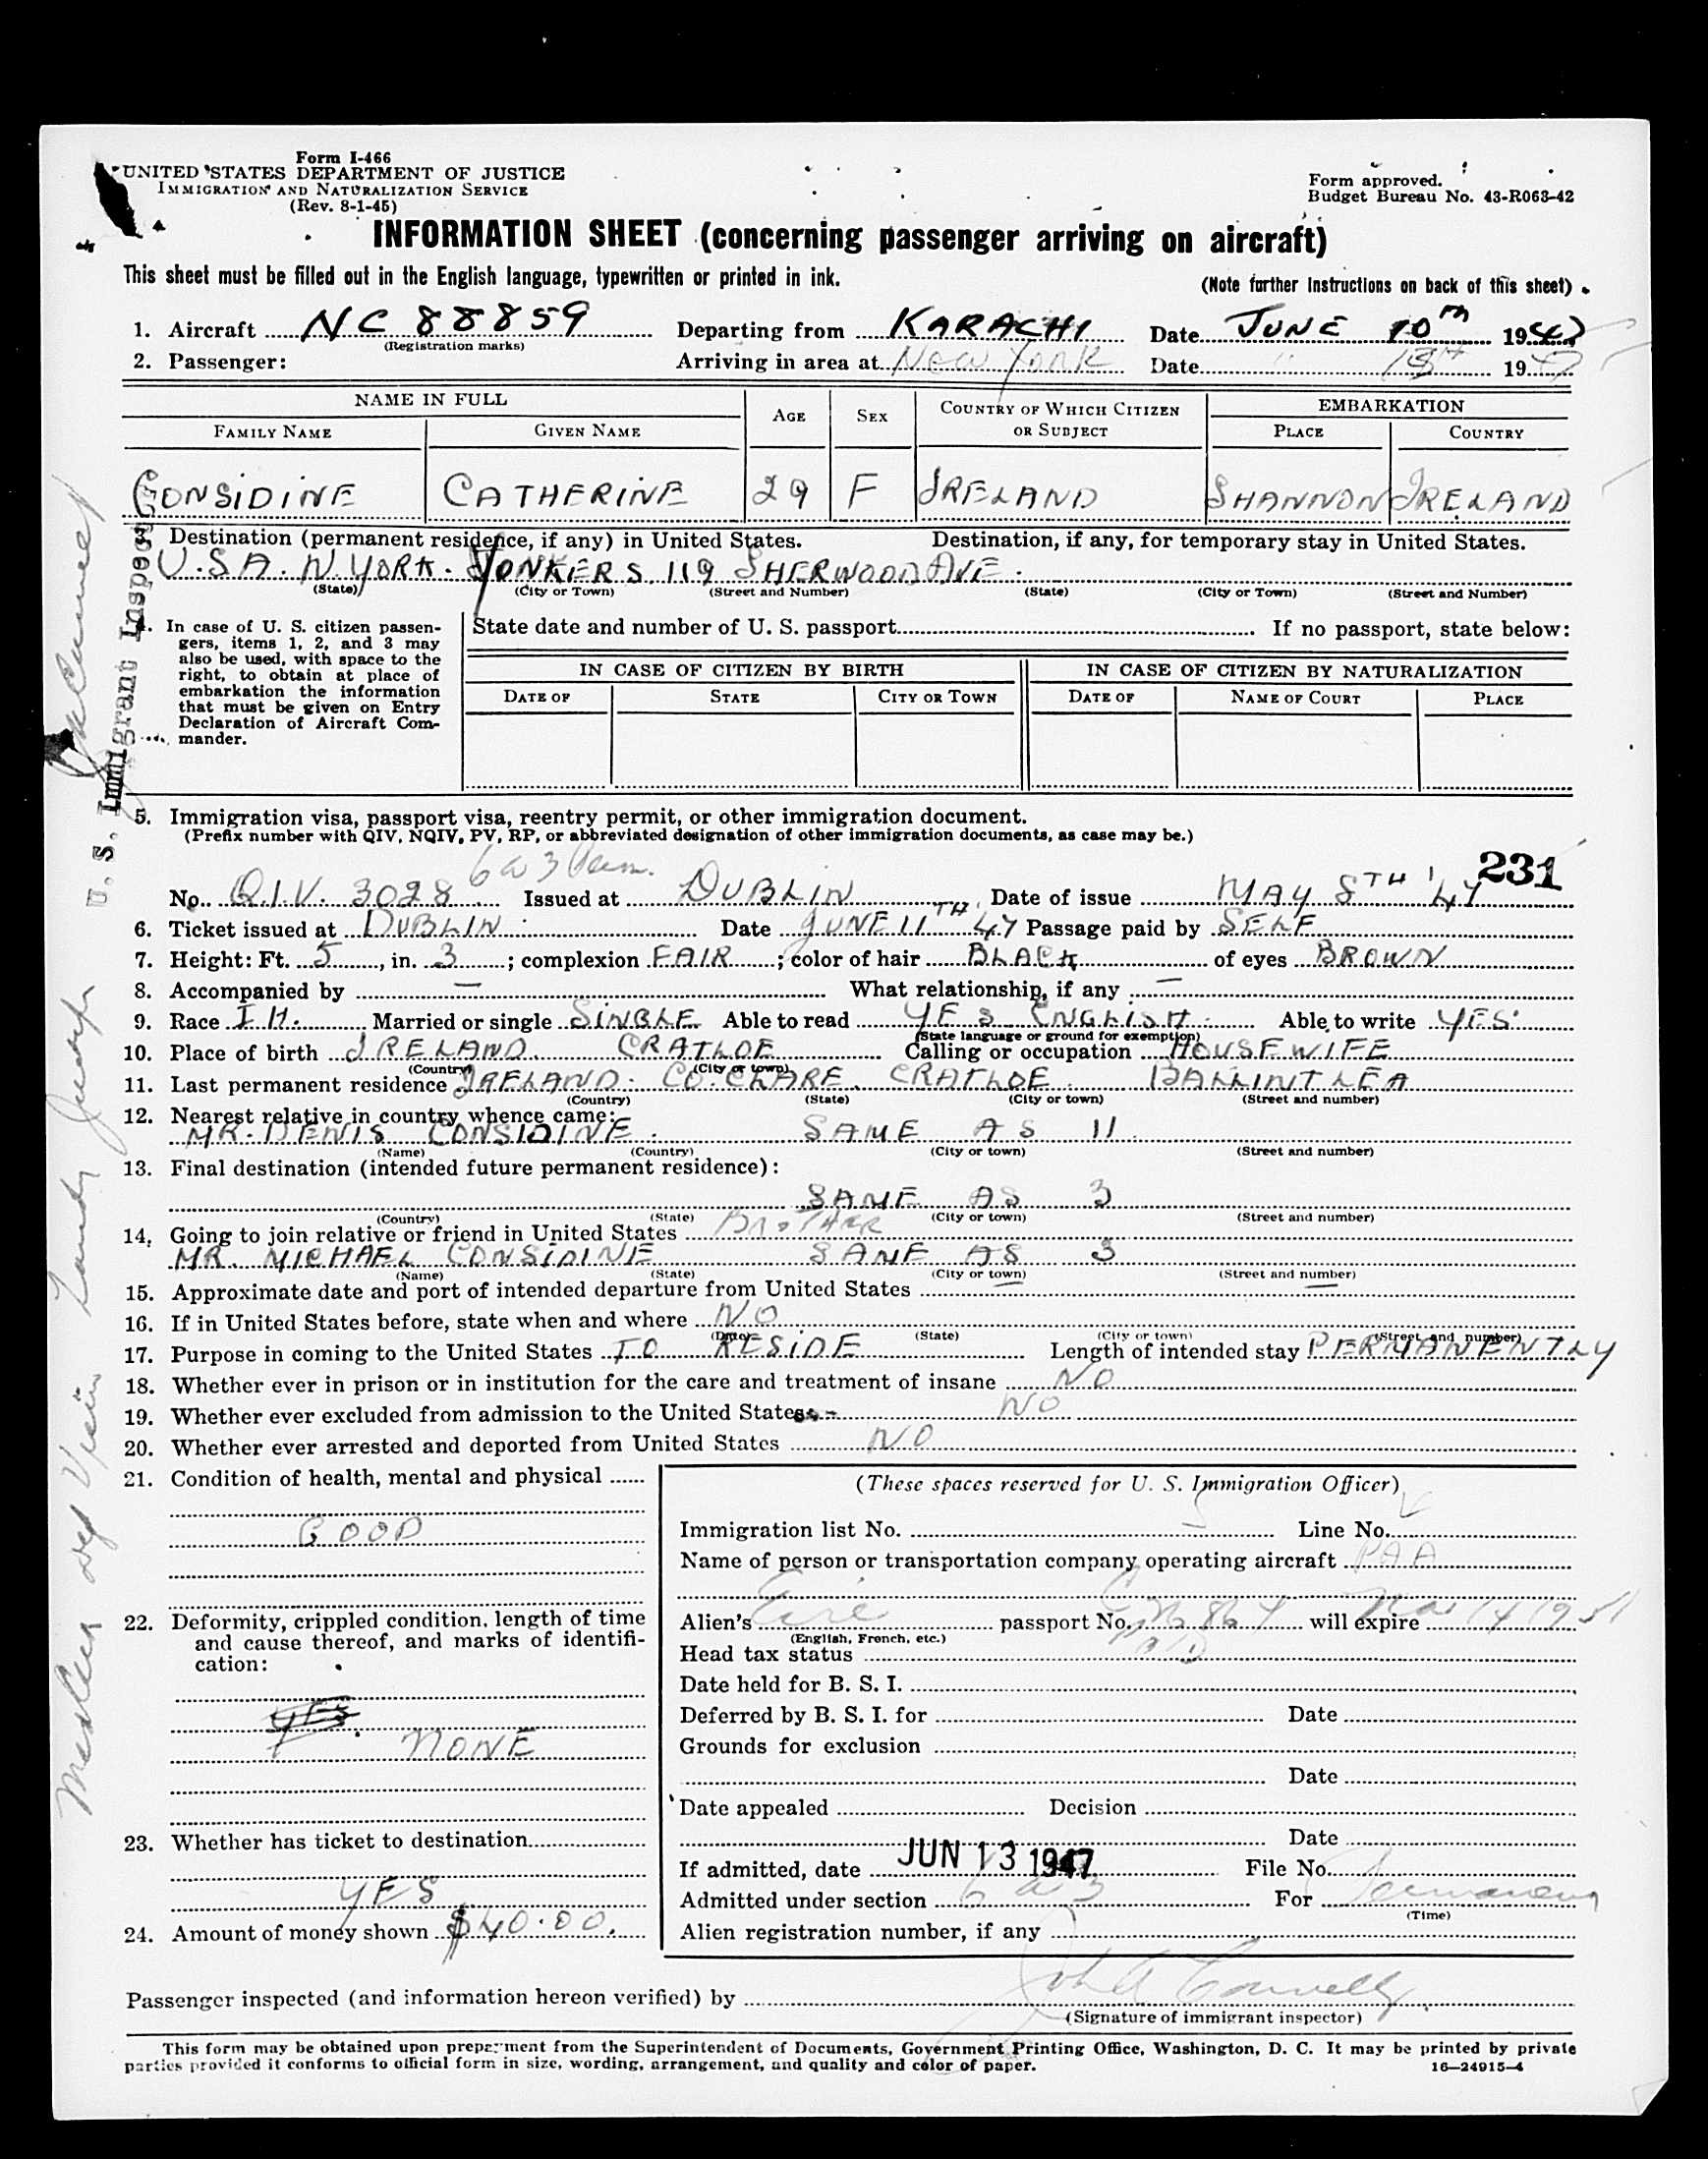 Form I-466
UNITED STATES DEPARTMENT OF JUSTICE
IMMIGRATION AND NATURALIZATION SERVICE
(Rev. 8-1-45)
Form approved.
Budget Bureau No. 43-R063-42
INFORMATION SHEET (concerning passenger arriving on aircraft)
This sheet must be filled out in the English language, typewritten or printed in ink.
(Note further instructions on back of this sheet)
1. Aircraft NC 88859 Departing from KARACHI Date JUNE 10th 1947
(Registration marks)
2. Passenger: Arriving in area at NEW YORK Date " 13th 1947
NAME IN FULL AGE SEX COUNTRY OF WHICH CITIZEN OR SUBJECT EMBARKATION
FAMILY NAME GIVEN NAME PLACE COUNTRY
CONSIDINE CATHERINE 29 F IRELAND SHANNON IRELAND
3. Destination (permanent residence, if any) in United States. Destination, if any, for temporary stay in United States.
U.S.A. N. YORK. YONKERS 119 SHERWOOD AVE.
(State) (City or Town) (Street and Number) (State) (City or Town) (Street and Number)
4. In case of U. S. citizen passengers, items 1, 2, and 3 may also be used, with space to the right, to obtain at place of embarkation the information that must be given on Entry Declaration of Aircraft Commander.
State date and number of U. S. passport If no passport, state below:
IN CASE OF CITIZEN BY BIRTH IN CASE OF CITIZEN BY NATURALIZATION
DATE OF STATE CITY OR TOWN DATE OF NAME OF COURT PLACE
U.S. Immigrant Inspector
5. Immigration visa, passport visa, reentry permit, or other immigration document.
(Prefix number with QIV, NQIV, PV, RP, or abbreviated designation of other immigration documents, as case may be.)
6a3 Perm.
231
No. Q.I.V. 3028 Issued at DUBLIN Date of issue MAY 8TH '47
6. Ticket issued at DUBLIN Date JUNE 11TH 47 Passage paid by SELF
7. Height: Ft. 5, in. 3; complexion FAIR; color of hair BLACK of eyes BROWN
8. Accompanied by — What relationship, if any —
9. Race IH. Married or single SINGLE Able to read YES ENGLISH Able to write YES
(State language or ground for exemption)
10. Place of birth IRELAND CRATLOE Calling or occupation HOUSEWIFE
(Country) (City or town)
11. Last permanent residence IRELAND. CO. CLARE. CRATLOE BALLINTLEA
(Country) (State) (City or town) (Street and number)
12. Nearest relative in country whence came:
MR. DENIS CONSIDINE. SAME AS 11
(Name) (Country) (City or town) (Street and number)
13. Final destination (intended future permanent residence):
SAME AS 3
(Country) (State) (City or town) (Street and number)
14. Going to join relative or friend in United States BROTHER
MR. MICHAEL CONSIDINE SAME AS 3
(Name) (State) (City or town) (Street and number)
15. Approximate date and port of intended departure from United States —
16. If in United States before, state when and where NO
(Date) (State) (City or town) (Street and number)
17. Purpose in coming to the United States TO RESIDE Length of intended stay PERMANENTLY
18. Whether ever in prison or in institution for the care and treatment of insane NO
19. Whether ever excluded from admission to the United States NO
20. Whether ever arrested and deported from United States NO
21. Condition of health, mental and physical
GOOD
22. Deformity, crippled condition, length of time and cause thereof, and marks of identification:
YES. NONE
23. Whether has ticket to destination
YES
24. Amount of money shown $40.00.
(These spaces reserved for U. S. Immigration Officer)
Immigration list No. 5 Line No.
Name of person or transportation company operating aircraft PAA
Alien's Eire passport No. will expire Mar 14 1951
(English, French, etc.)
Head tax status Paid
Date held for B. S. I.
Deferred by B. S. I. for Date
Grounds for exclusion
Date
Date appealed Decision
Date
If admitted, date JUN 13 1947 File No.
Admitted under section 6 a 3 For Permanent
(Time)
Alien registration number, if any
Passenger inspected (and information hereon verified) by
(Signature of immigrant inspector)
This form may be obtained upon prepayment from the Superintendent of Documents, Government Printing Office, Washington, D. C. It may be printed by private
parties provided it conforms to official form in size, wording, arrangement, and quality and color of paper.
16—24915-4